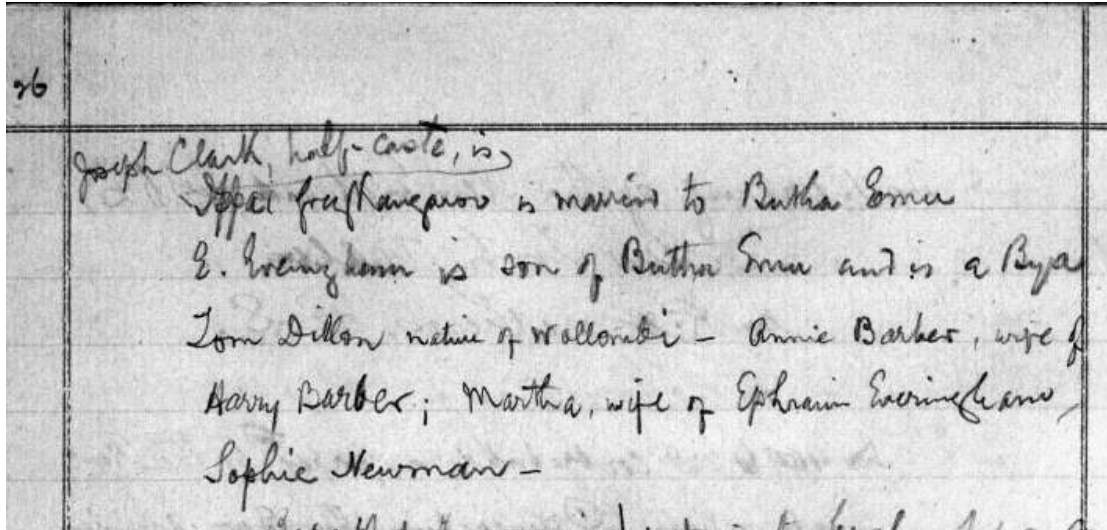 26
Joseph Clark, half-caste, is,
Ippai grey Kangaroo is married to Butha Emu
E. Everingham is son of Butha Emu and is a Bya
Tom Dillon native of Wollombi - Annie Barber, wife of
Harry Barber; Martha, wife of Ephraim Everingham,
Sophie Newman -